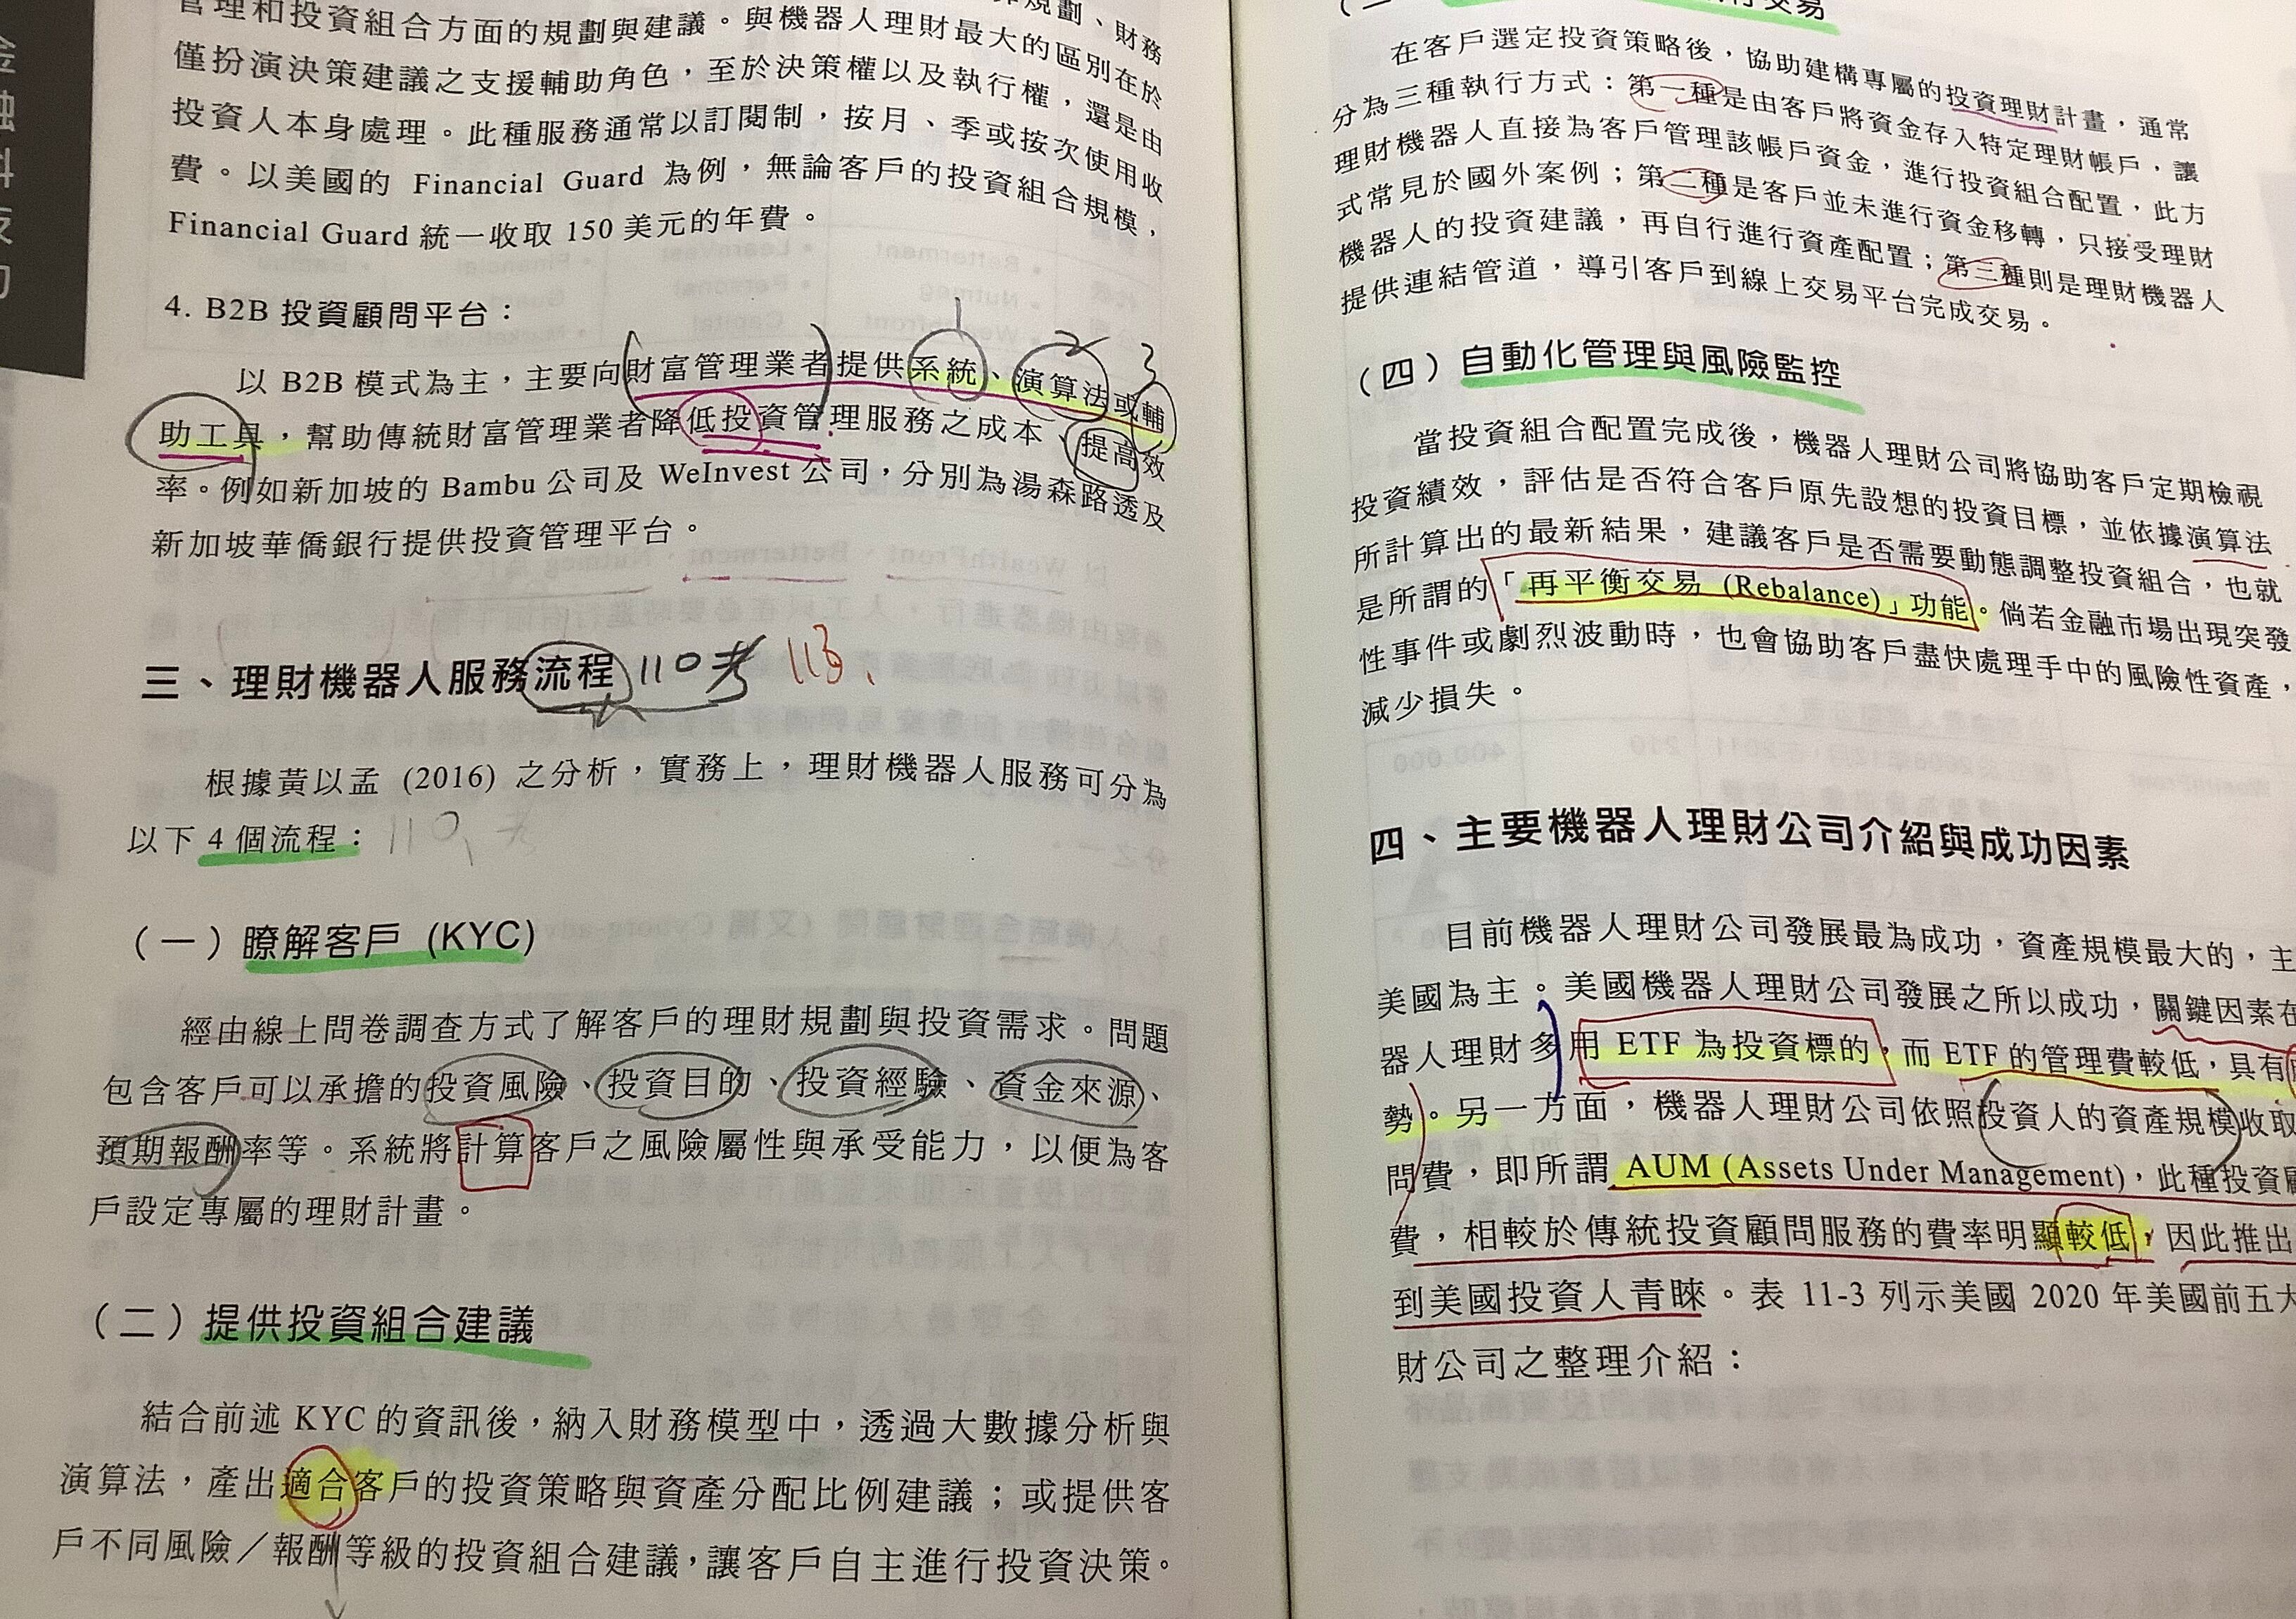 金融科技力
管理和投資組合方面的規劃與建議。與機器人理財最大的區別在於
規劃、財務
僅扮演決策建議之支援輔助角色，至於決策權以及執行權，還是由
投資人本身處理。此種服務通常以訂閱制，按月、季或按次使用收
費。以美國的 Financial Guard 為例，無論客戶的投資組合規模，
Financial Guard 統一收取 150 美元的年費。
4. B2B 投資顧問平台：
1 2 3
以 B2B 模式為主，主要向財富管理業者提供系統、演算法或輔
助工具，幫助傳統財富管理業者降低投資管理服務之成本、提高效
率。例如新加坡的 Bambu 公司及 WeInvest 公司，分別為湯森路透及
新加坡華僑銀行提供投資管理平台。
三、理財機器人服務流程 110考 113、
根據黃以孟 (2016) 之分析，實務上，理財機器人服務可分為
以下 4 個流程： 110、考
（一）瞭解客戶 (KYC)
經由線上問卷調查方式了解客戶的理財規劃與投資需求。問題
包含客戶可以承擔的投資風險、投資目的、投資經驗、資金來源、
預期報酬率等。系統將計算客戶之風險屬性與承受能力，以便為客
戶設定專屬的理財計畫。
（二）提供投資組合建議
結合前述 KYC 的資訊後，納入財務模型中，透過大數據分析與
演算法，產出適合客戶的投資策略與資產分配比例建議；或提供客
戶不同風險／報酬等級的投資組合建議，讓客戶自主進行投資決策。
交易
在客戶選定投資策略後，協助建構專屬的投資理財計畫，通常
分為三種執行方式：第一種是由客戶將資金存入特定理財帳戶，讓
理財機器人直接為客戶管理該帳戶資金，進行投資組合配置，此方
式常見於國外案例；第二種是客戶並未進行資金移轉，只接受理財
機器人的投資建議，再自行進行資產配置；第三種則是理財機器人
提供連結管道，導引客戶到線上交易平台完成交易。
（四）自動化管理與風險監控
當投資組合配置完成後，機器人理財公司將協助客戶定期檢視
投資績效，評估是否符合客戶原先設想的投資目標，並依據演算法
所計算出的最新結果，建議客戶是否需要動態調整投資組合，也就
是所謂的「再平衡交易 (Rebalance)」功能。倘若金融市場出現突發
性事件或劇烈波動時，也會協助客戶盡快處理手中的風險性資產，
減少損失。
四、主要機器人理財公司介紹與成功因素
目前機器人理財公司發展最為成功，資產規模最大的，主
美國為主。美國機器人理財公司發展之所以成功，關鍵因素在
器人理財多用 ETF 為投資標的，而 ETF 的管理費較低，具有
勢。另一方面，機器人理財公司依照投資人的資產規模收取
問費，即所謂 AUM (Assets Under Management)，此種投資顧
費，相較於傳統投資顧問服務的費率明顯較低，因此推出
到美國投資人青睞。表 11-3 列示美國 2020 年美國前五大
財公司之整理介紹：